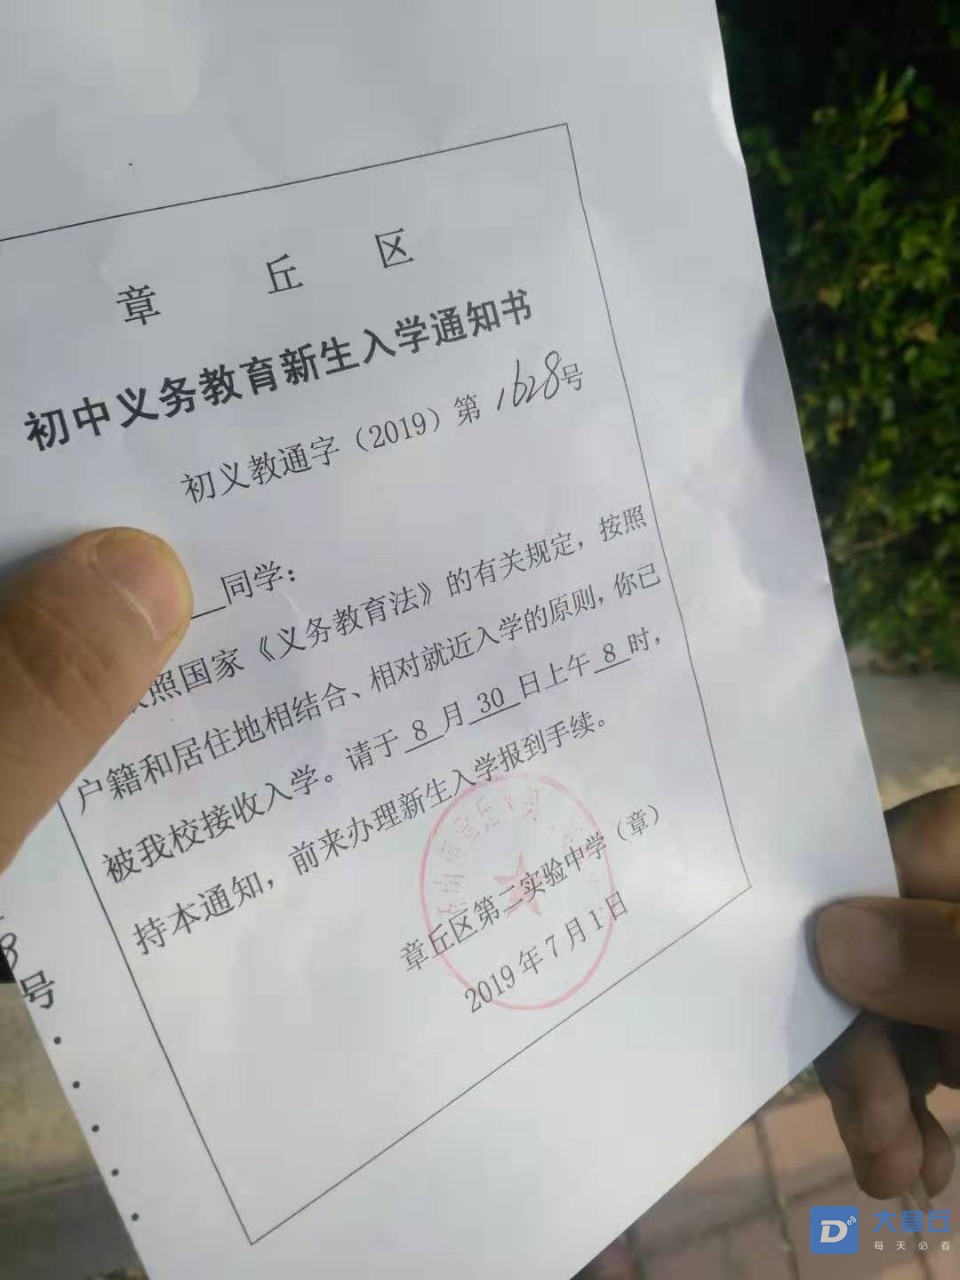 章丘区
初中义务教育新生入学通知书
初义教通字（2019）第1628号
同学：
照国家《义务教育法》的有关规定，按照
户籍和居住地相结合、相对就近入学的原则，你已
被我校接收入学。请于8月30日上午8时，
持本通知，前来办理新生入学报到手续。
章丘区第二实验中学（章）
2019年7月1日
8
号
大章丘
每天必看